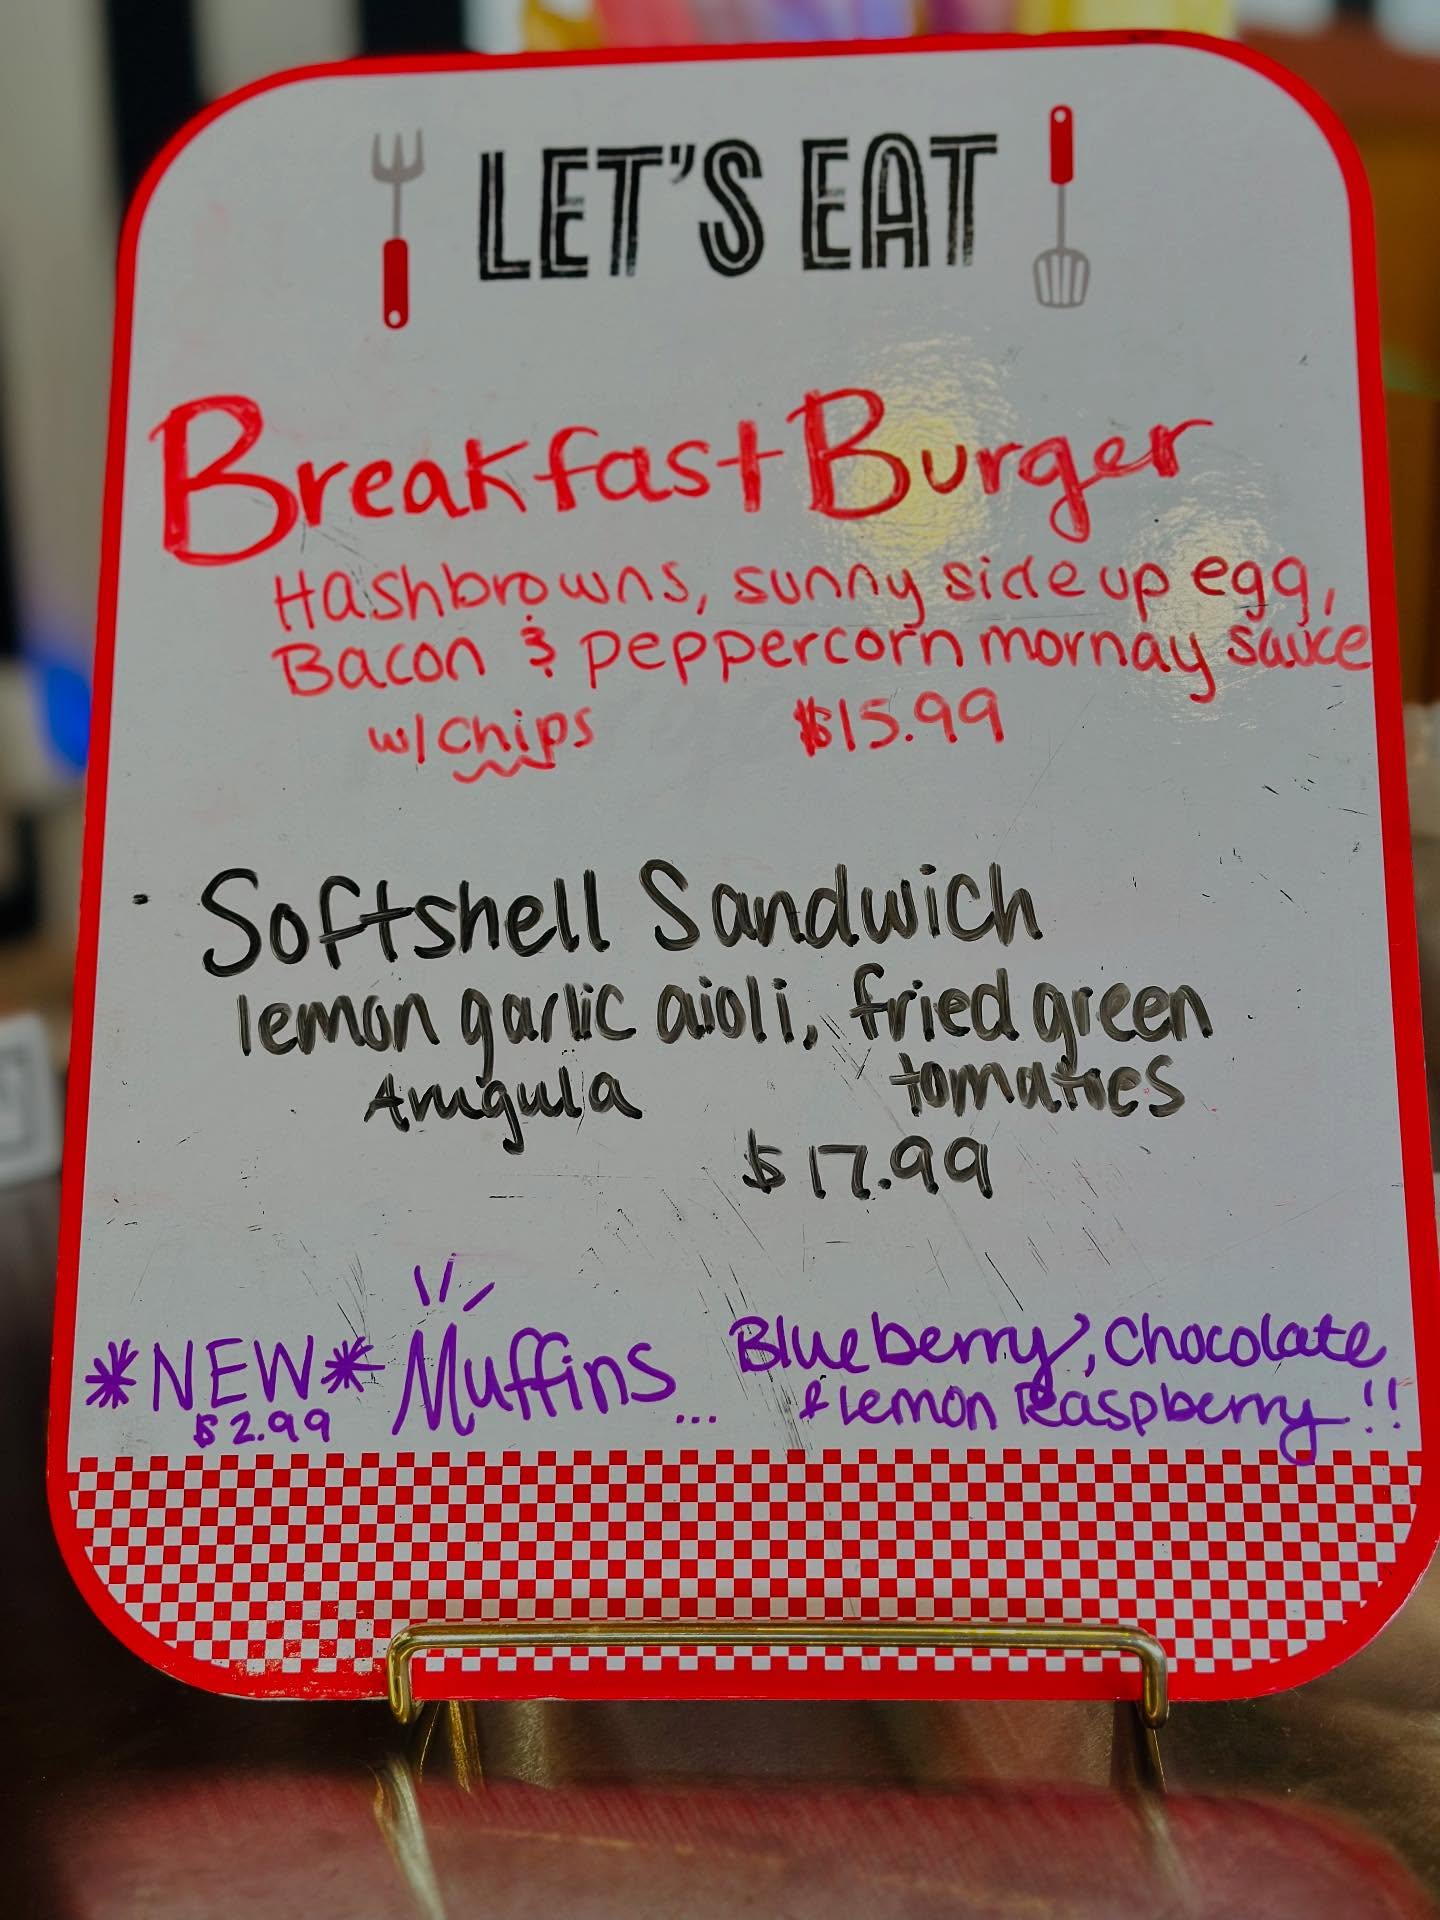 LET'S EAT
Breakfast Burger
Hashbrowns, sunny side up egg,
Bacon & peppercorn mornay sauce
w/ chips $15.99
Softshell Sandwich
lemon garlic aioli, fried green
Arugula tomatoes
$17.99
*NEW* Muffins... Blueberry, Chocolate
$2.99 & lemon Raspberry!!